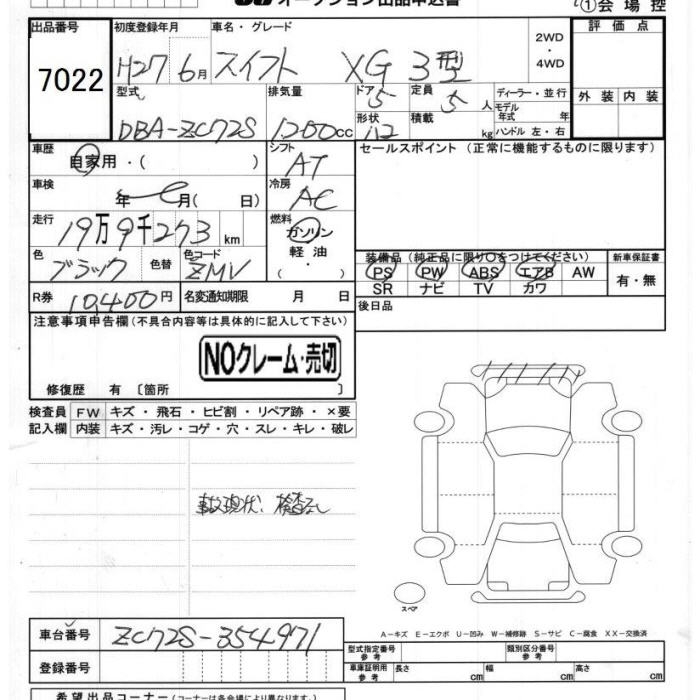 オークション出品申込書
①会場控
出品番号 初度登録年月 車名・グレード 評価点
7022 H27 6月 スイフト XG 3型 2WD・4WD
型式 排気量 ドア 5 定員 5人 ディーラー・並行 外装 内装
DBA-ZC72S 1200cc 形状 積載 kg モデル年式 年 ハンドル 左・右
車歴 シフト セールスポイント (正常に機能するものに限ります)
自家用・( ) AT
車検 冷房
年 月( 日) AC
走行 燃料
19万9千273km ガソリン
軽油・
色 色替 色コード 装備品 (純正品に限り○をつけてください) 新車保証書
ブラック ZMV PS PW ABS エアB AW 有・無
SR ナビ TV カワ
R券 10,400円 名変通知期限 月 日 後日品
注意事項申告欄 (不具合内容等は具体的に記入して下さい)
NOクレーム・売切
修復歴 有 〔箇所 〕
検査員 FW キズ・飛石・ヒビ割・リペア跡・×要
記入欄 内装 キズ・汚レ・コゲ・穴・スレ・キレ・破レ
事故現状 検査なし
スペア
A-キズ E-エクボ U-凹み W-補修跡 S-サビ C-腐食 XX-交換済
車台番号 ZC72S-354971 型式指定番号 参考 類別区分番号 参考
登録番号 車庫証明用 参考 長さ cm 幅 cm 高さ cm
希望出品コーナー (コーナーは各会場により異なります。)